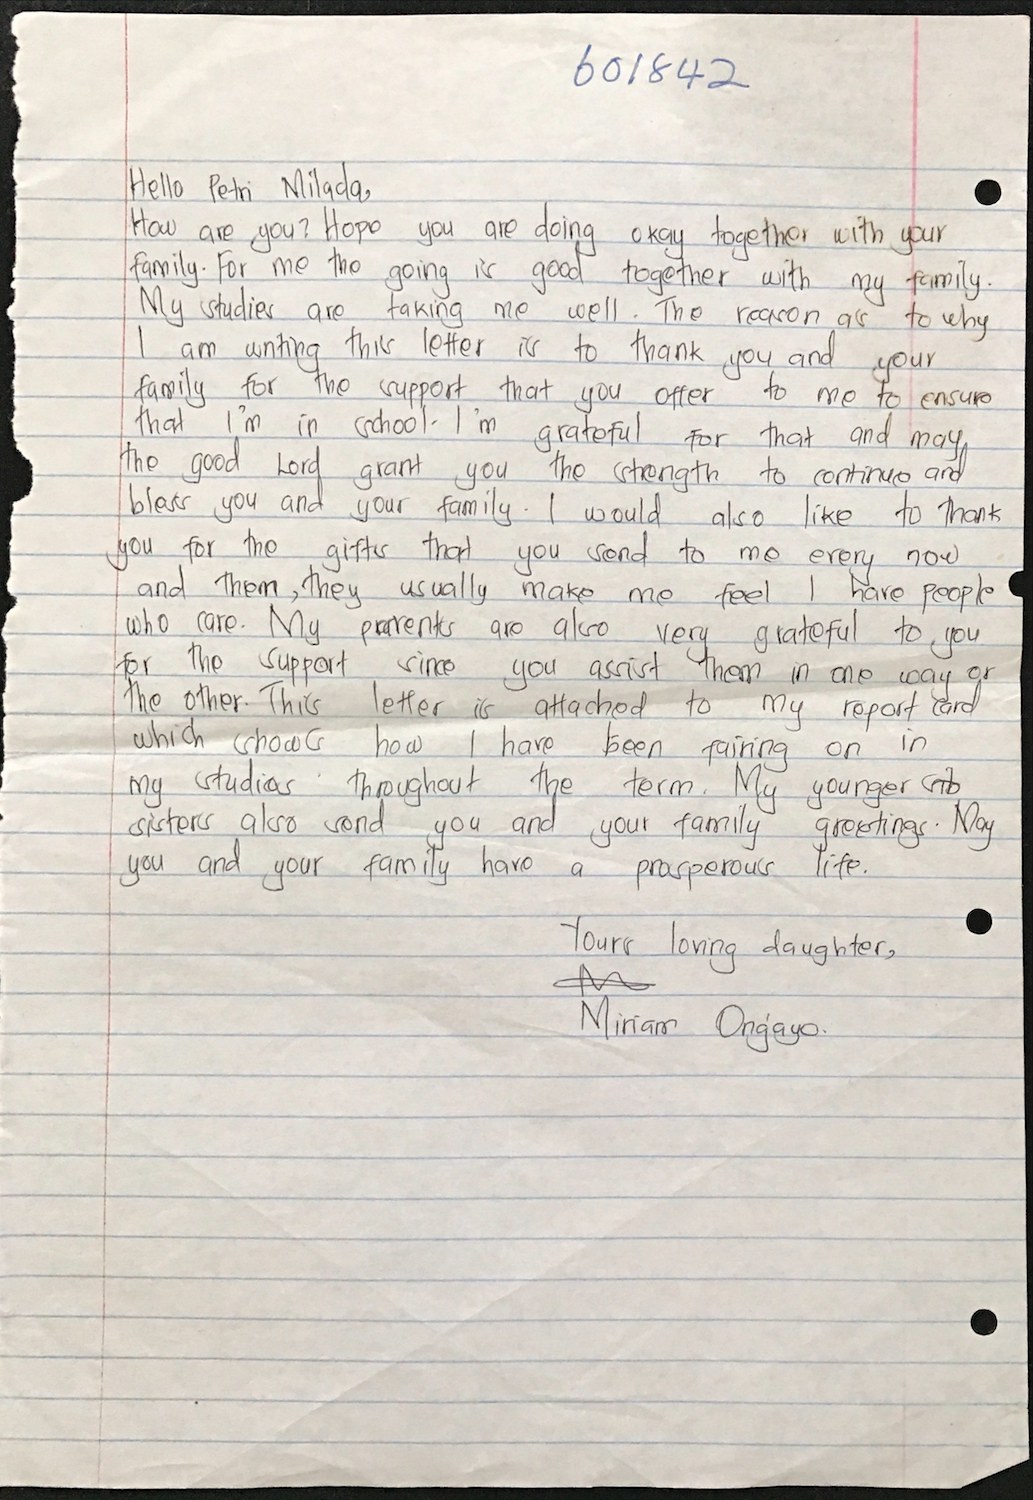 601842
Hello Petri Milada,
How are you? Hope you are doing okay together with your
family. For me the going is good together with my family.
My studies are taking me well. The reason as to why
I am writing this letter is to thank you and your
family for the support that you offer to me to ensure
that I'm in school. I'm grateful for that and may
the good Lord grant you the strength to continue and
bless you and your family. I would also like to thank
you for the gifts that you send to me every now
and them, they usually make me feel I have people
who care. My parents are also very grateful to you
for the support since you assist them in one way or
the other. This letter is attached to my report card
which shows how I have been fairing on in
my studies throughout the term. My younger sib
sisters also send you and your family greetings. May
you and your family have a prosperous life.
Yours loving daughter,
Miriam Ong'ayo.